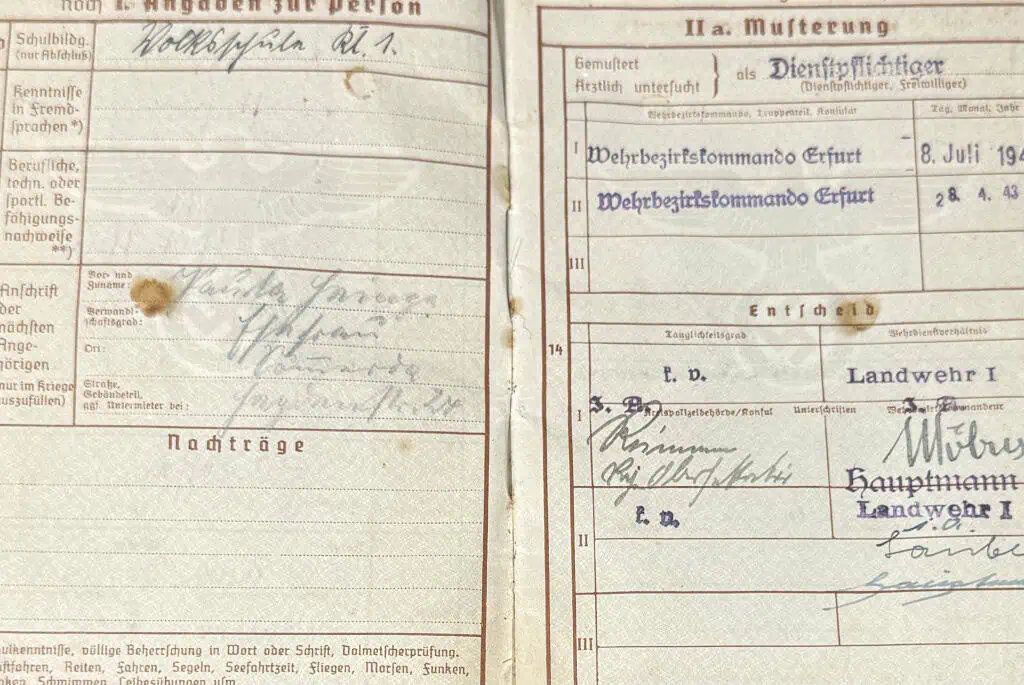 noch I. Angaben zur Person
Schulbildg.
(nur Abschluß)
Volksschule Kl. 1.
Kenntnisse
in Fremd-
sprachen *)
Berufliche,
techn. oder
sportl. Be-
fähigungs-
nachweise
**)
Anschrift
der
nächsten
Ange-
hörigen
(nur im Kriege
auszufüllen)
Vor- und
Zuname:
Verwandt-
schaftsgrad:
Ehefrau
Ort:
Sömmerda
Straße,
Gebäudeteil,
ggf. Untermieter bei:
24
Nachträge
völlige Beherrschung in Wort oder Schrift, Dolmetscherprüfung.
Reiten, Fahren, Segeln, Seefahrtzeit, Fliegen, Morsen, Funken,
Schwimmen, Leibesübungen usw.
II a. Musterung
Gemustert
Ärztlich untersucht } als Dienstpflichtiger
(Dienstpflichtiger, Freiwilliger)
Wehrbezirkskommando, Truppenteil, Konsulat
Tag, Monat, Jahr
I Wehrbezirkskommando Erfurt 8. Juli 194
II Wehrbezirkskommando Erfurt 28. 4. 43
III
Entscheid
14
Tauglichkeitsgrad
Wehrdienstverhältnis
k. v.
Landwehr I
I
Kreispolizeibehörde/Konsul
Unterschriften
Möbus
Hauptmann
II
k. v.
Landwehr I
III